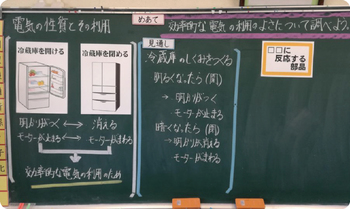 電気の性質とその利用
めあて
効率的な電気の利用のよさについて調べよう。
冷蔵庫を開ける
冷蔵庫を閉める
明かりがつく ⟷ 消える
モーターが止まる ⟷ モーターがまわる
効率的な電気の利用のため
見通し
冷蔵庫のしくみをつくる
明るくなったら(開)
→ 明かりがつく
モーターが止まる
暗くなったら(閉)
→ 明かりが消える
モーターがまわる
□□に
反応する
部品